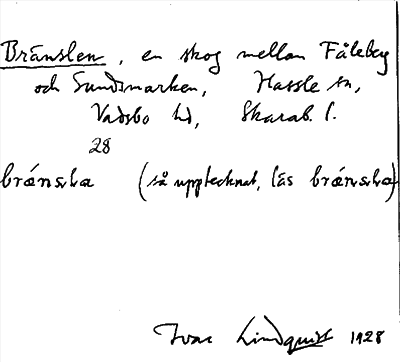 Bränslen, en skog mellan Fåleberg
och Sundsmarken, Hassle sn,
Vadsbo hd, Skarab. l.
28
brǽnska (så upptecknat, läs brǽnska)
Ivar Lindquist 1928